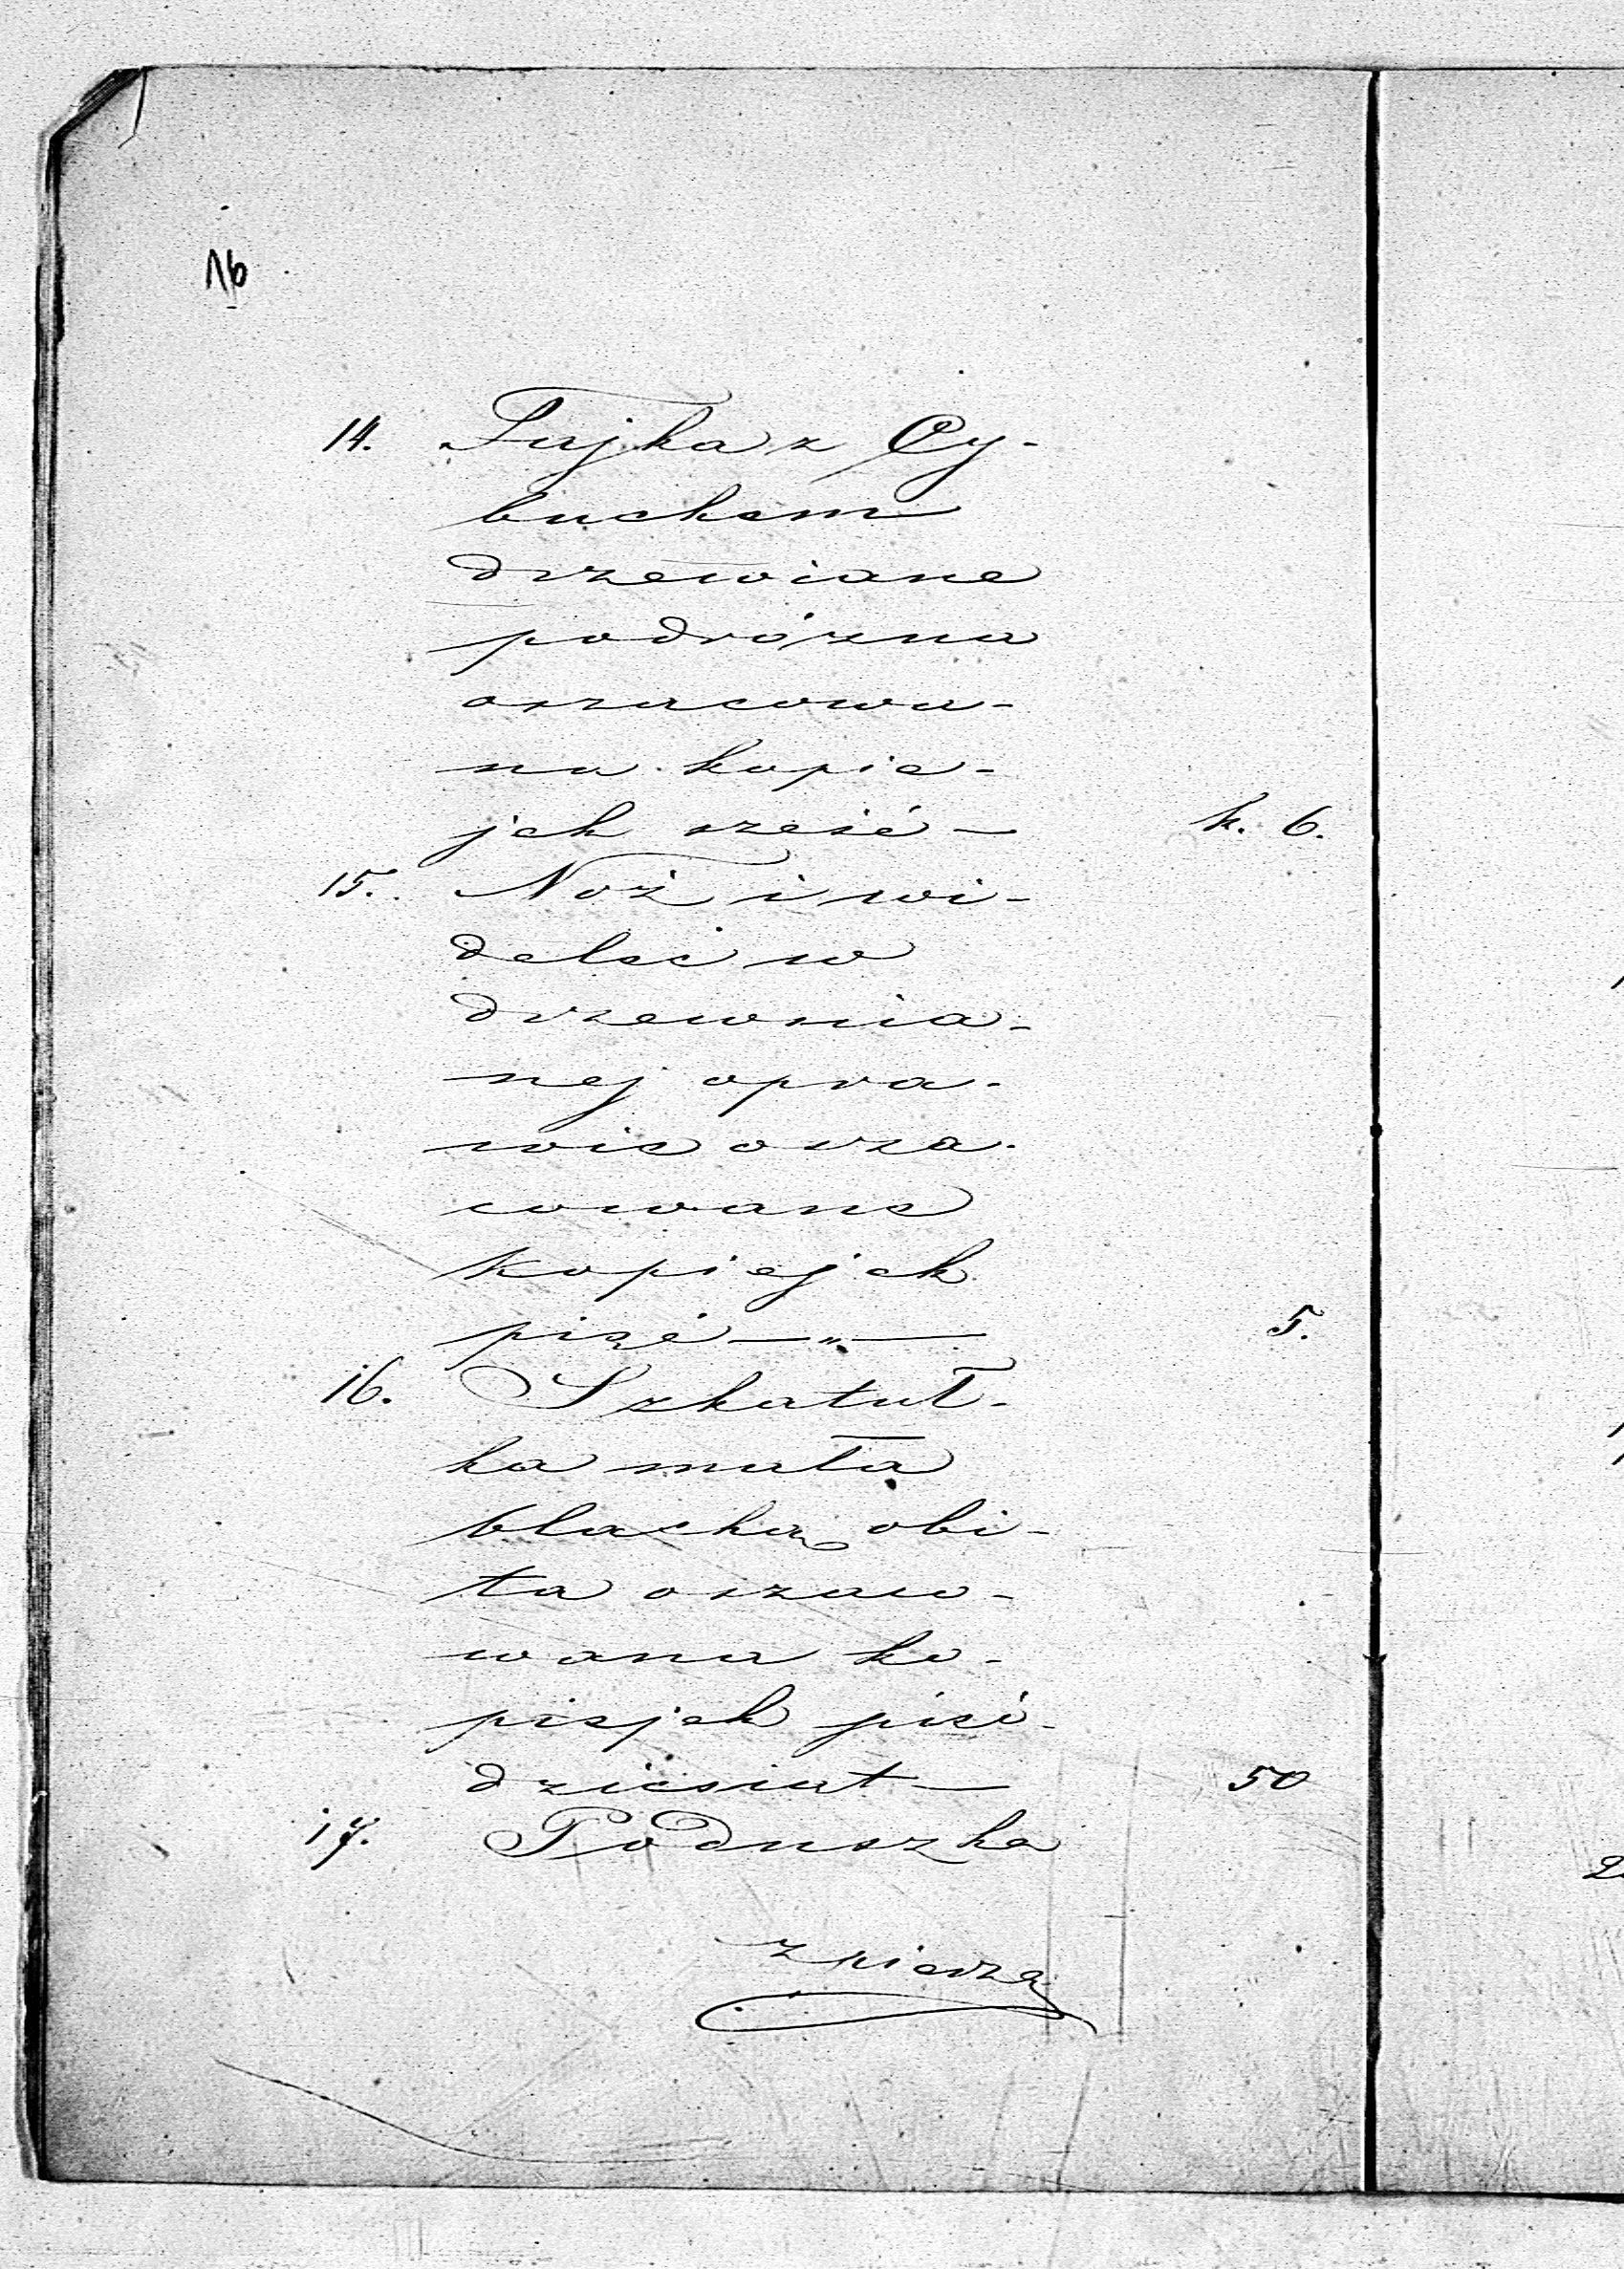 16
14. Fajka z Cy-
buchem
drzewiane
podróżna
oszacowa-
na kopie-
jek sześć — k. 6.
15. Nóż i wi-
delec w
drzewnia-
nej opra-
wie osza-
cowane
kopiejek
pięć — „ — 5.
16. Szkatuł-
ka mała
blachą obi-
ta oszaco-
wana ko-
piejek pięć-
dziesiat — 50
17. Poduszka
z pierza